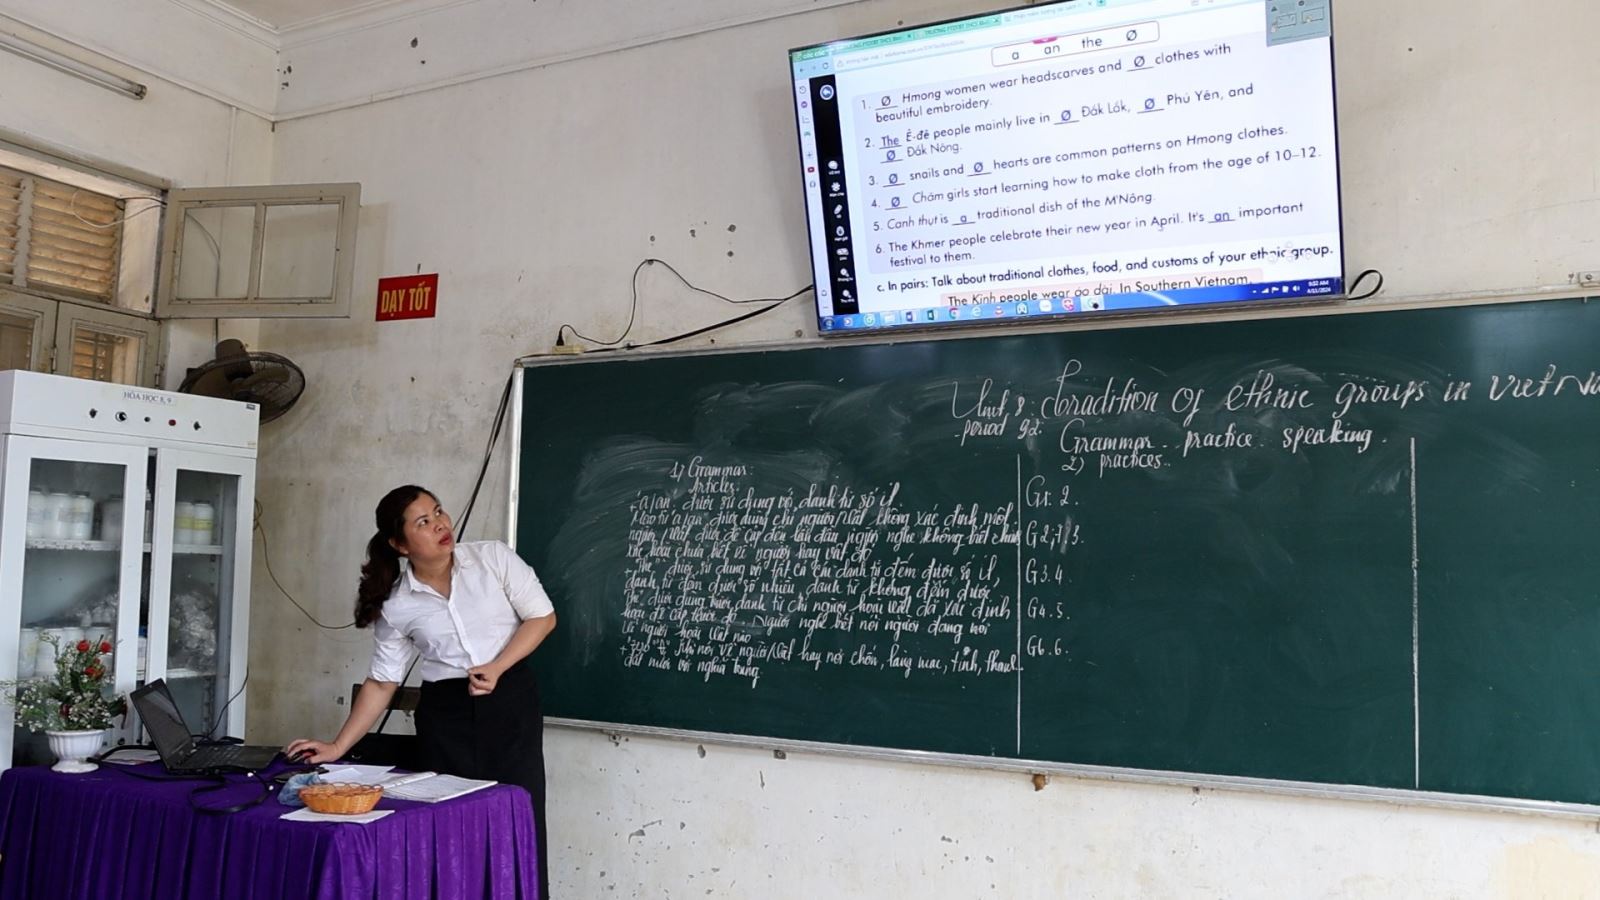 a an the Ø
1. Ø Hmong women wear headscarves and Ø clothes with
beautiful embroidery.
2. The Ê-đê people mainly live in Ø Đắk Lắk, Ø Phú Yên, and
Ø Đắk Nông.
3. Ø snails and Ø hearts are common patterns on Hmong clothes.
4. Ø Chăm girls start learning how to make cloth from the age of 10–12.
5. Canh thụt is a traditional dish of the M'Nông.
6. The Khmer people celebrate their new year in April. It's an important
festival to them.
c. In pairs: Talk about traditional clothes, food, and customs of your ethnic group.
The Kinh people wear áo dài. In Southern Vietnam,
DẠY TỐT
HÓA HỌC 8, 9
Unit 8: tradition of ethnic groups in Viet Na
period 92: Grammar practice speaking.
1) Grammar:
Articles:
+ "a/an" được sử dụng với danh từ số ít.
Mạo từ a/an được dùng chỉ người/vật không xác định một
người/vật được đề cập đến lần đầu, người nghe không biết
xác hoặc chưa biết về người hay vật đó
+ "The" được sử dụng với tất cả các danh từ đếm được số ít,
danh từ đếm được số nhiều, danh từ không đếm được
"The" được dùng trước danh từ chỉ người hoặc vật đã xác định
hoặc đề cập trước đó. Người nghe biết nói người đang nói
về người hoặc vật nào
+ Khi nói về người/vật hay nơi chốn, làng mạc, tỉnh,
đất nước với nghĩa chung.
2) practices..
G1. 2.
G2; 7, 3.
G3. 4.
G4. 5.
G6. 6.